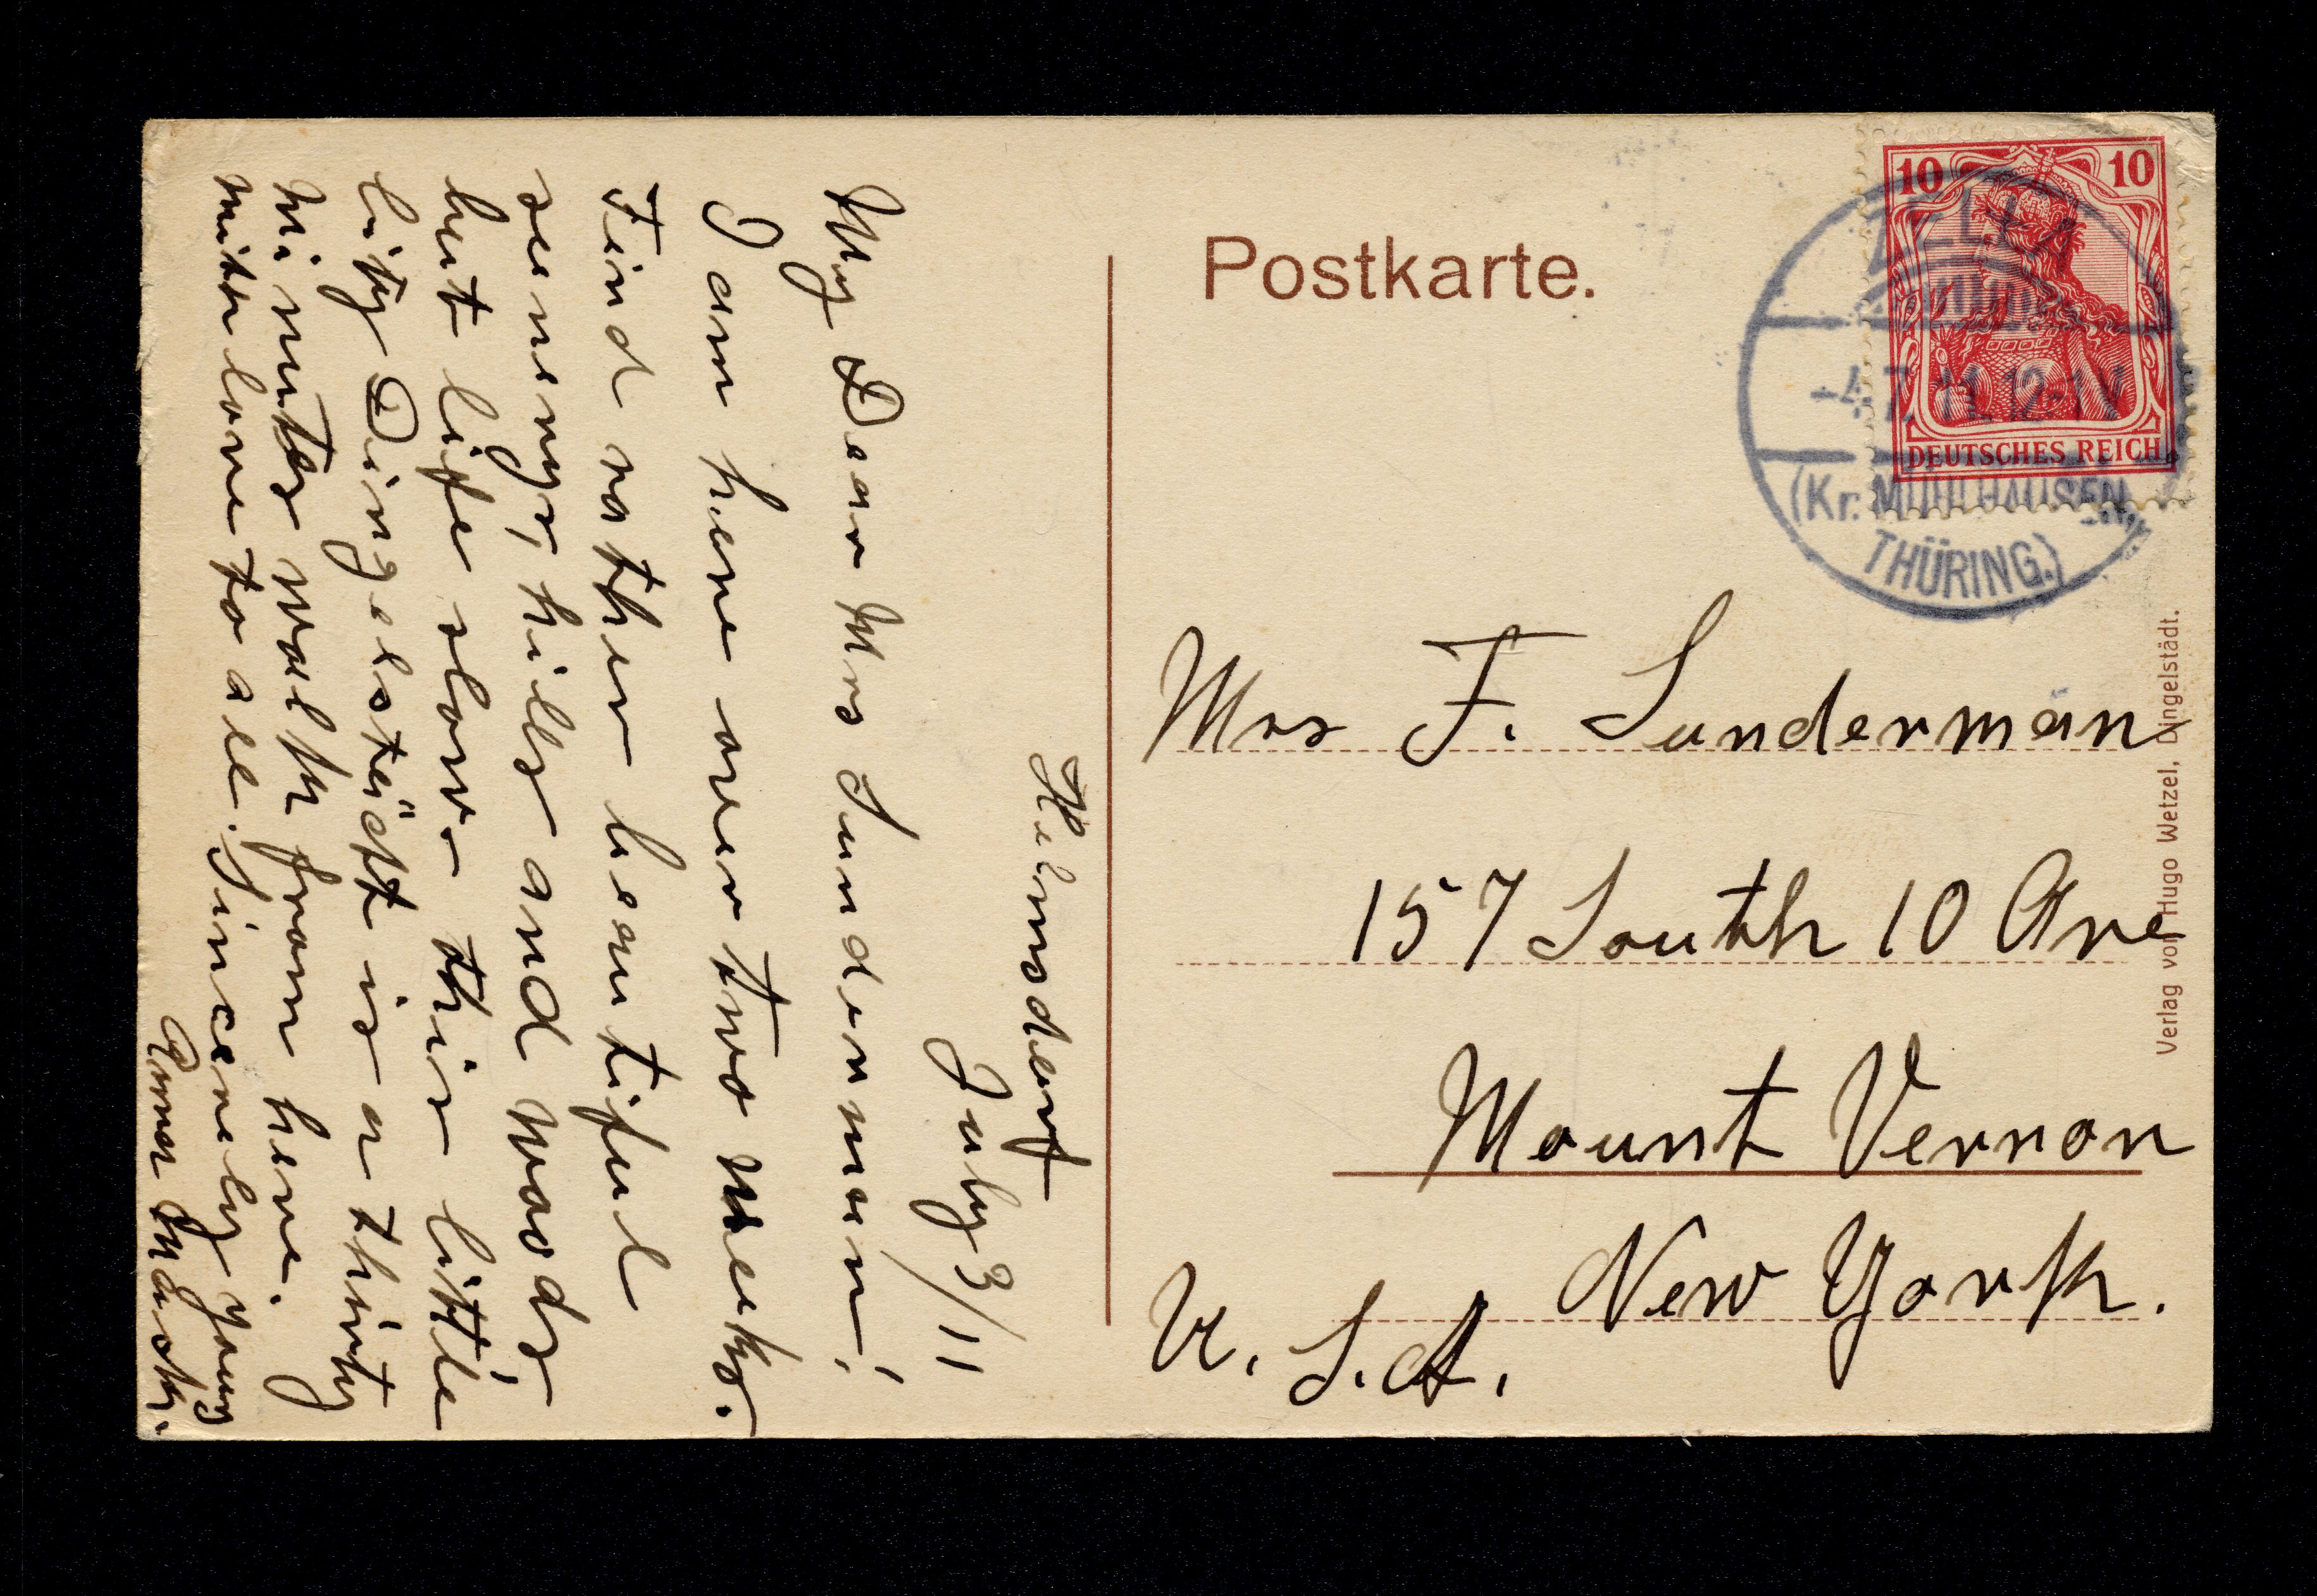 Postkarte.
10 10
DEUTSCHES REICH
ZELLA
-4.7.11.12-1N
(Kr. MÜHLHAUSEN,
THÜRING.)
Mrs F. Sunderman
157 South 10 Ave
Mount Vernon
New York.
U. S. A.
Verlag von Hugo Wetzel, Dingelstädt.
Helmsdorf
July 3/11
My Dear Mrs Sunderman!
I am here over two weeks.
Find rather beautiful
scenerys, hills and woods,
but life slow- this little
city Dingelstädt is a thirty
minutes walk from here.
With love to all. Sincerely yours
Anna